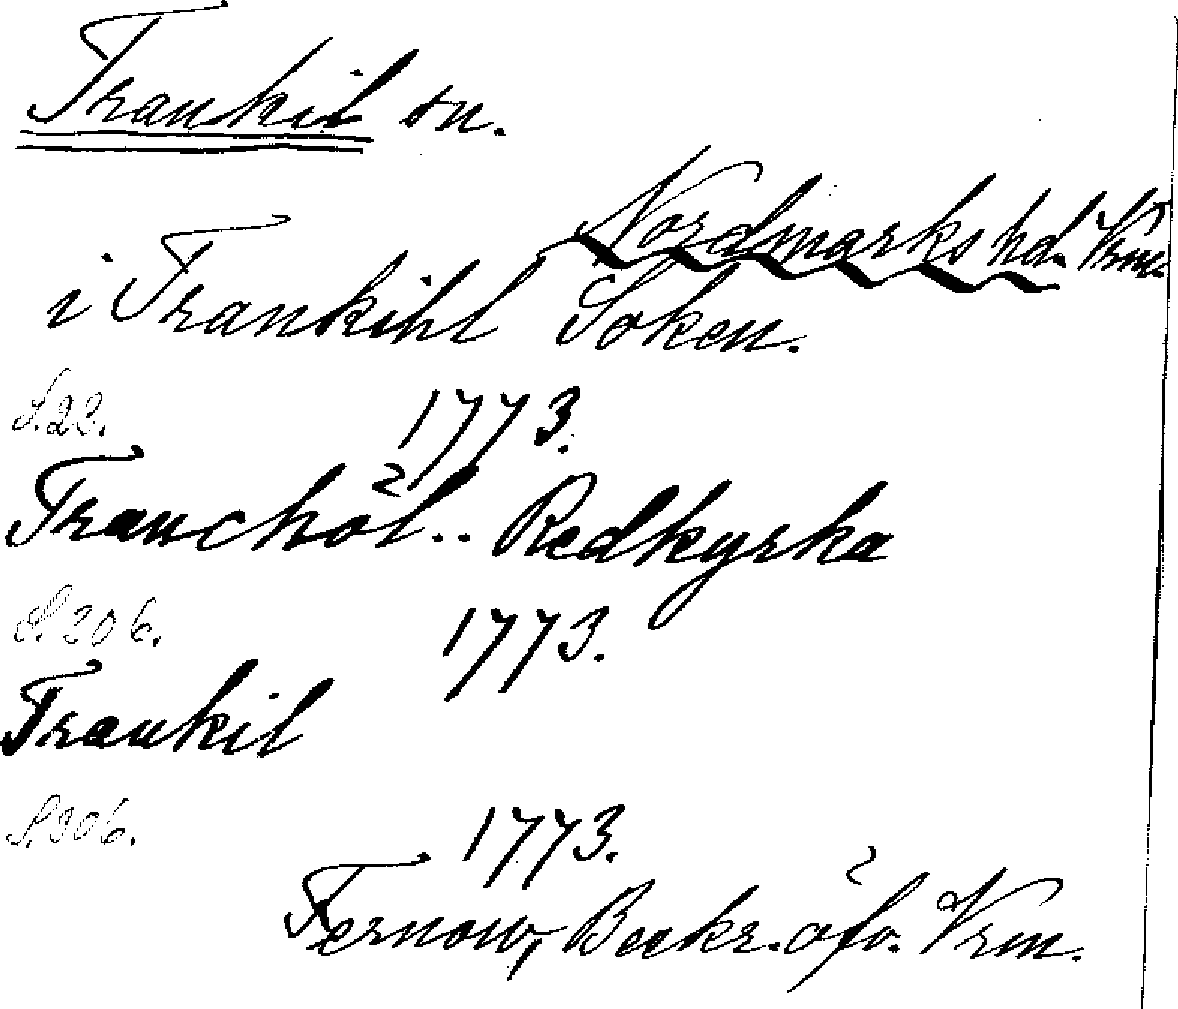 Trankil sn.
Nordmarks hd. Vrm.
i Trankihl Soken.
S. 22. 1773.
Tranchöl.. Redkyrka
S. 206. 1773.
Trankil
S. 306. 1773.
Fernow, Beskr. öfv. Vrm.